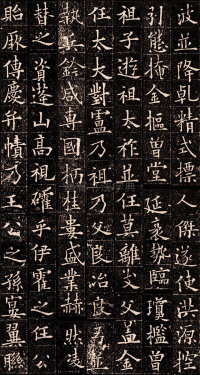 波並降乾精式標人傑遂使洪源控
引態掩金樞曾堂延袤勢臨瓊檻曾
祖子遊祖太祚並任莫離支父盖金
任太大對盧乃祖乃父良冶良弓並
執兵鈐咸專國柄桂婁盛業赫然凌
替之資蓬山高視確乎伊霍之任公
貽厥傳慶弁幘乃王公之孫宴翼聯